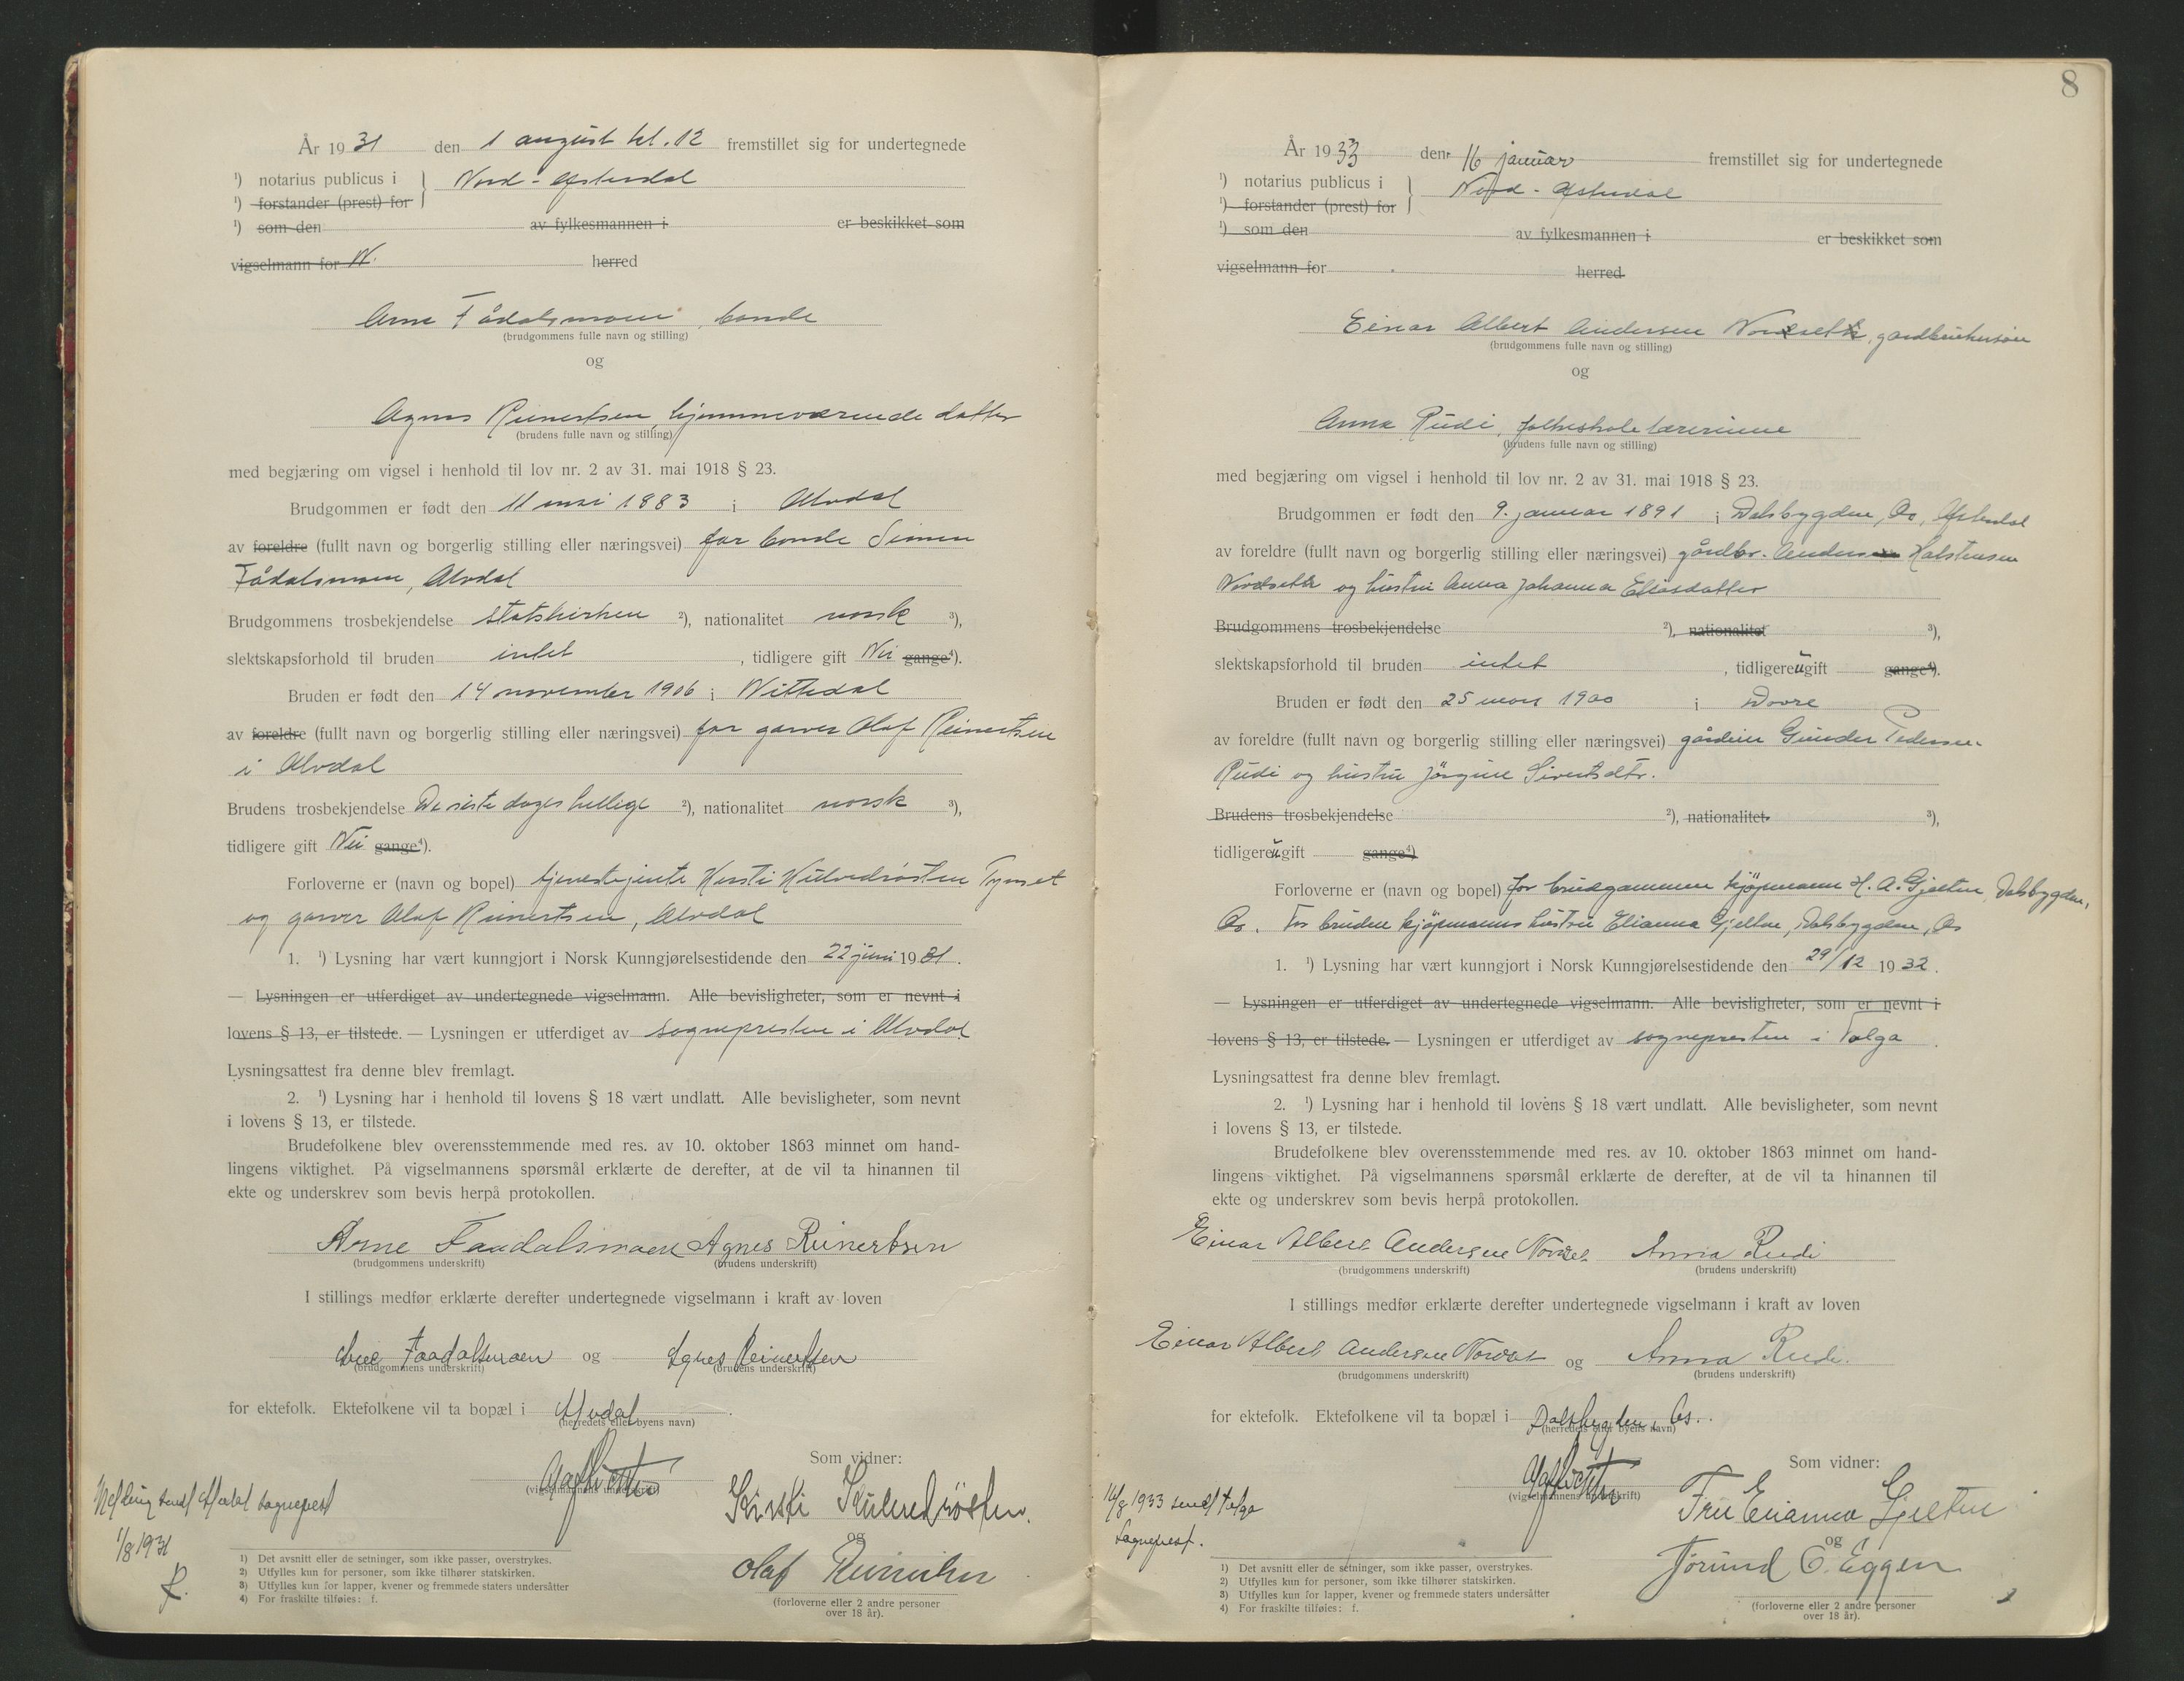 År 1931 den 1 august kl. 12 fremstillet sig for undertegnede
¹) notarius publicus i } Nord-Østerdal
¹) forstander (prest) for
¹) som den av fylkesmannen i er beskikket som
vigselmann for N. herred
Arne Fådalsmoen, bonde
(brudgommens fulle navn og stilling)
og
Agnes Reinertsen, hjemmeværende datter
(brudens fulle navn og stilling)
med begjæring om vigsel i henhold til lov nr. 2 av 31. mai 1918 § 23.
Brudgommen er født den 11 mai 1883 i Alvdal
av foreldre (fullt navn og borgerlig stilling eller næringsvei) far bonde Simen
Fådalsmoen, Alvdal
Brudgommens trosbekjendelse statskirken ²), nationalitet norsk ³),
slektskapsforhold til bruden intet, tidligere gift Nei gange⁴).
Bruden er født den 14 november 1906 i Nittedal
av foreldre (fullt navn og borgerlig stilling eller næringsvei) far garver Olaf Reinertsen
i Alvdal
Brudens trosbekjendelse De siste dages hellige ²), nationalitet norsk ³),
tidligere gift Nei gange⁴).
Forloverne er (navn og bopel) tjenestejente Kirsti Tynset
og garver Olaf Reinertsen, Alvdal
1. ¹) Lysning har vært kunngjort i Norsk Kunngjørelsestidende den 22 juni 1931.
— Lysningen er utferdiget av undertegnede vigselmann. Alle bevisligheter, som er nevnt i
lovens § 13, er tilstede. — Lysningen er utferdiget av sognepresten i Alvdal
Lysningsattest fra denne blev fremlagt.
2. ¹) Lysning har i henhold til lovens § 18 vært undlatt. Alle bevisligheter, som nevnt
i lovens § 13, er tilstede.
Brudefolkene blev overensstemmende med res. av 10. oktober 1863 minnet om hand-
lingens viktighet. På vigselmannens spørsmål erklærte de derefter, at de vil ta hinannen til
ekte og underskrev som bevis herpå protokollen.
Arne Faadalsmoen Agnes Reinertsen
(brudgommens underskrift) (brudens underskrift)
I stillings medfør erklærte derefter undertegnede vigselmann i kraft av loven
Arne Faadalsmoen og Agnes Reinertsen
(brudgommens underskrift) (brudens underskrift)
for ektefolk. Ektefolkene vil ta bopæl i Alvdal.
(herredets eller byens navn)
Som vidner:
(vigselmannens underskrift)
Kirsti
og
Olaf Reinertsen
(forloverne eller 2 andre personer
over 18 år).
Melding sendt Alvdal sogneprest
1/8 1931
1) Det avsnitt eller de setninger, som ikke passer, overstrykes.
2) Utfylles kun for personer, som ikke tilhører statskirken.
3) Utfylles kun for lapper, kvener og fremmede staters undersåtter
4) For fraskilte tilføies: f.
8
År 1933 den 16 januar fremstillet sig for undertegnede
¹) notarius publicus i } Nord-Østerdal
¹) forstander (prest) for
¹) som den av fylkesmannen i er beskikket som
vigselmann for herred
Einar Albert Andersen Nordseth, gardbrukersøn
(brudgommens fulle navn og stilling)
og
Anna Rudi, folkeskolelærerinne
(brudens fulle navn og stilling)
med begjæring om vigsel i henhold til lov nr. 2 av 31. mai 1918 § 23.
Brudgommen er født den 9. januar 1891 i Dalsbygden, Os, Østerdal
av foreldre (fullt navn og borgerlig stilling eller næringsvei) gårdbr. Anders Halstensen
Nordseth og hustru Anna Johanna Eliasdatter
Brudgommens trosbekjendelse ²), nationalitet ³),
slektskapsforhold til bruden intet, tidligere ugift gange⁴).
Bruden er født den 25 mars 1900 i Dovre
av foreldre (fullt navn og borgerlig stilling eller næringsvei) gårdeier Gunder Pedersen
Rudi og hustru Jörgine Sivertsdtr.
Brudens trosbekjendelse ²), nationalitet ³),
tidligere ugift gange⁴)
Forloverne er (navn og bopel) for brudgommen kjøpmann H. A. Gjelten, Dalsbygden,
Os. For bruden kjøpmanns hustru Elianna Gjelten, Dalsbygden, Os
1. ¹) Lysning har vært kunngjort i Norsk Kunngjørelsestidende den 29/12 1932.
— Lysningen er utferdiget av undertegnede vigselmann. Alle bevisligheter, som er nevnt i
lovens § 13, er tilstede. — Lysningen er utferdiget av sognepresten i Tolga.
Lysningsattest fra denne blev fremlagt.
2. ¹) Lysning har i henhold til lovens § 18 vært undlatt. Alle bevisligheter, som nevnt
i lovens § 13, er tilstede.
Brudefolkene blev overensstemmende med res. av 10. oktober 1863 minnet om hand-
lingens viktighet. På vigselmannens spørsmål erklærte de derefter, at de vil ta hinannen til
ekte og underskrev som bevis herpå protokollen.
Einar Albert Andersen Nordset Anna Rudi
(brudgommens underskrift) (brudens underskrift)
I stillings medfør erklærte derefter undertegnede vigselmann i kraft av loven
Einar Albert Andersen Nordset og Anna Rudi.
(brudgommens underskrift) (brudens underskrift)
for ektefolk. Ektefolkene vil ta bopæl i Dalsbygden, Os.
(herredets eller byens navn)
Som vidner:
(vigselmannens underskrift)
Fru Elianna Gjelten
og
Jorund O. Eggen
(forloverne eller 2 andre personer
over 18 år).
1933 sendt Tolga
sogneprest.
1) Det avsnitt eller de setninger, som ikke passer, overstrykes.
2) Utfylles kun for personer, som ikke tilhører statskirken.
3) Utfylles kun for lapper, kvener og fremmede staters undersåtter
4) For fraskilte tilføies: f.